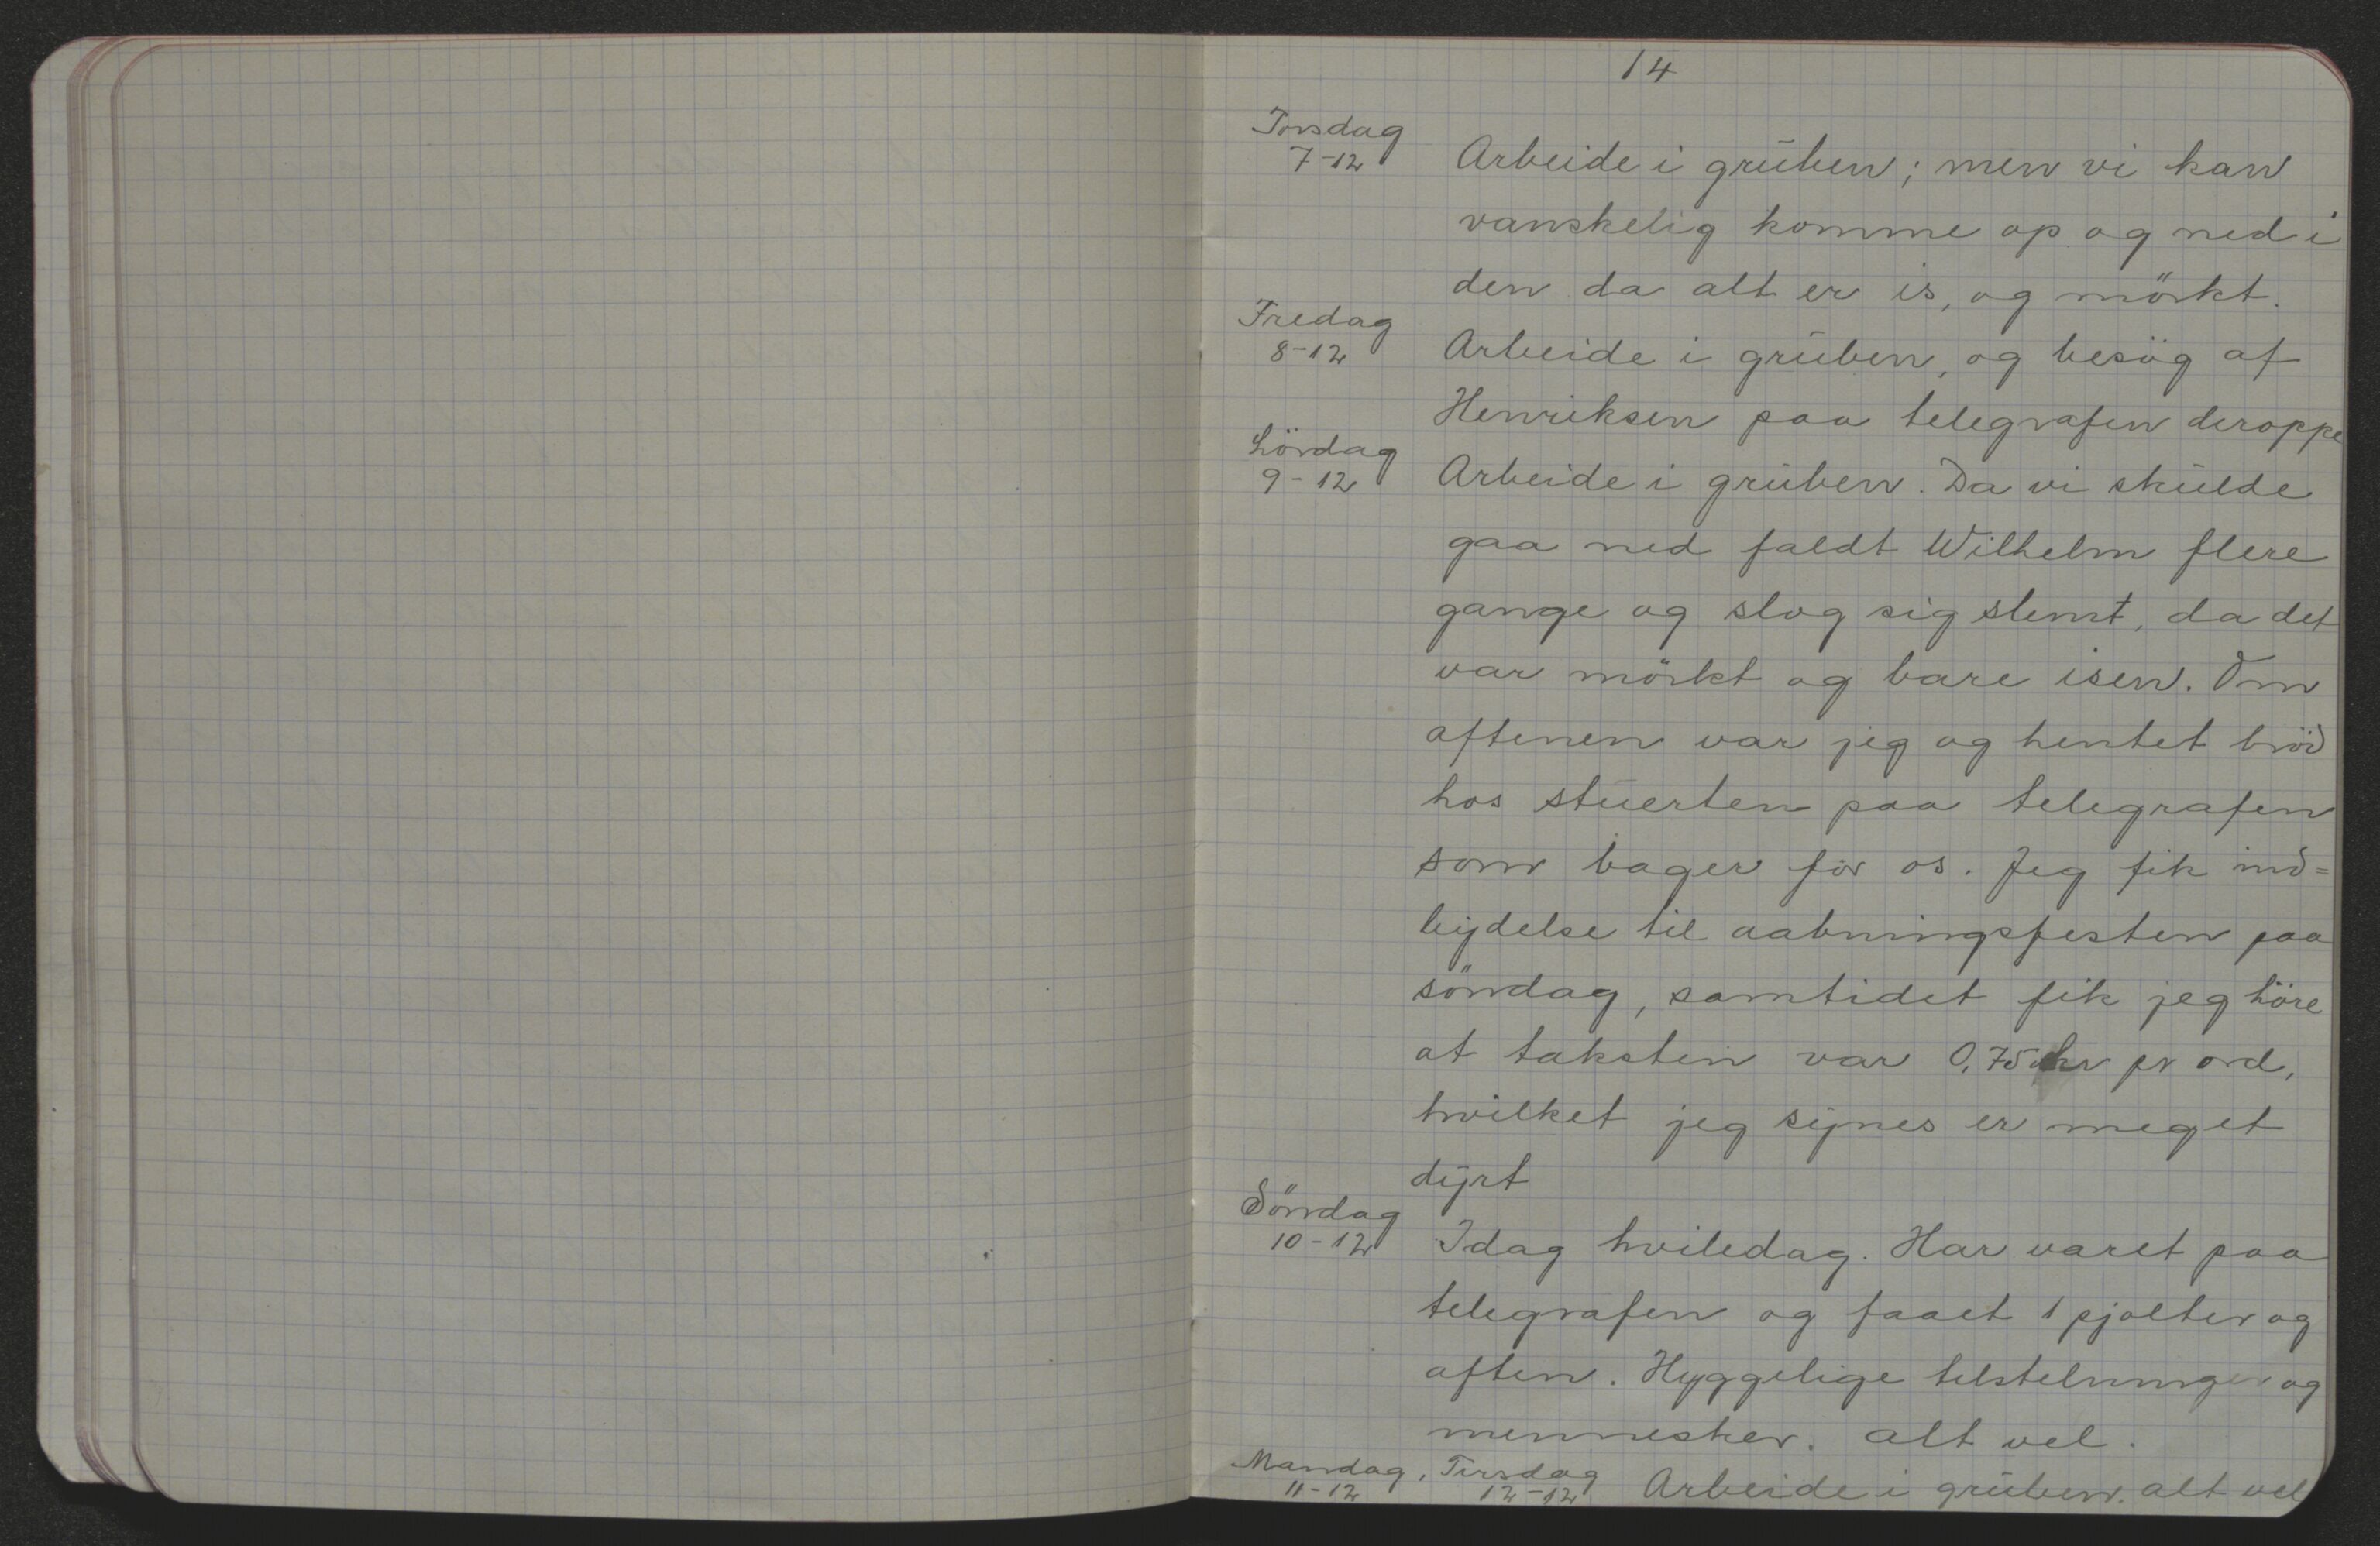 14
Torsdag
7-12
Arbeide i grüben; men vi kan
vanskelig komme op og ned i
den da alt er is, og mörkt.
Fredag
8-12
Arbeide i grüben, og besög af
Henriksen paa telegrafen deroppe
Lördag
9-12
Arbeide i grüben. Da vi skülde
gaa ned faldt Wilhelm flere
gange og slog sig slemt, da det
var mörkt og bare isen. Om
aftenen var jeg og hentet bröd
hos stüerten paa telegrafen
som bager for os. Jeg fik ind=
bÿdelse til aabningsfesten paa
söndag, samtidet fik jeg höre
at taksten var 0,75 kr pr ord,
hvilket jeg sÿnes er meget
dÿrt
Söndag
10-12
Idag hviledag. Har varet paa
telegrafen og faaet 1 pjolter og
aften. Hyggelige telstelninger og
mennesker. alt vel.
Mandag, Tirsdag
11-12 12-12
Arbeide i grüben. alt vel